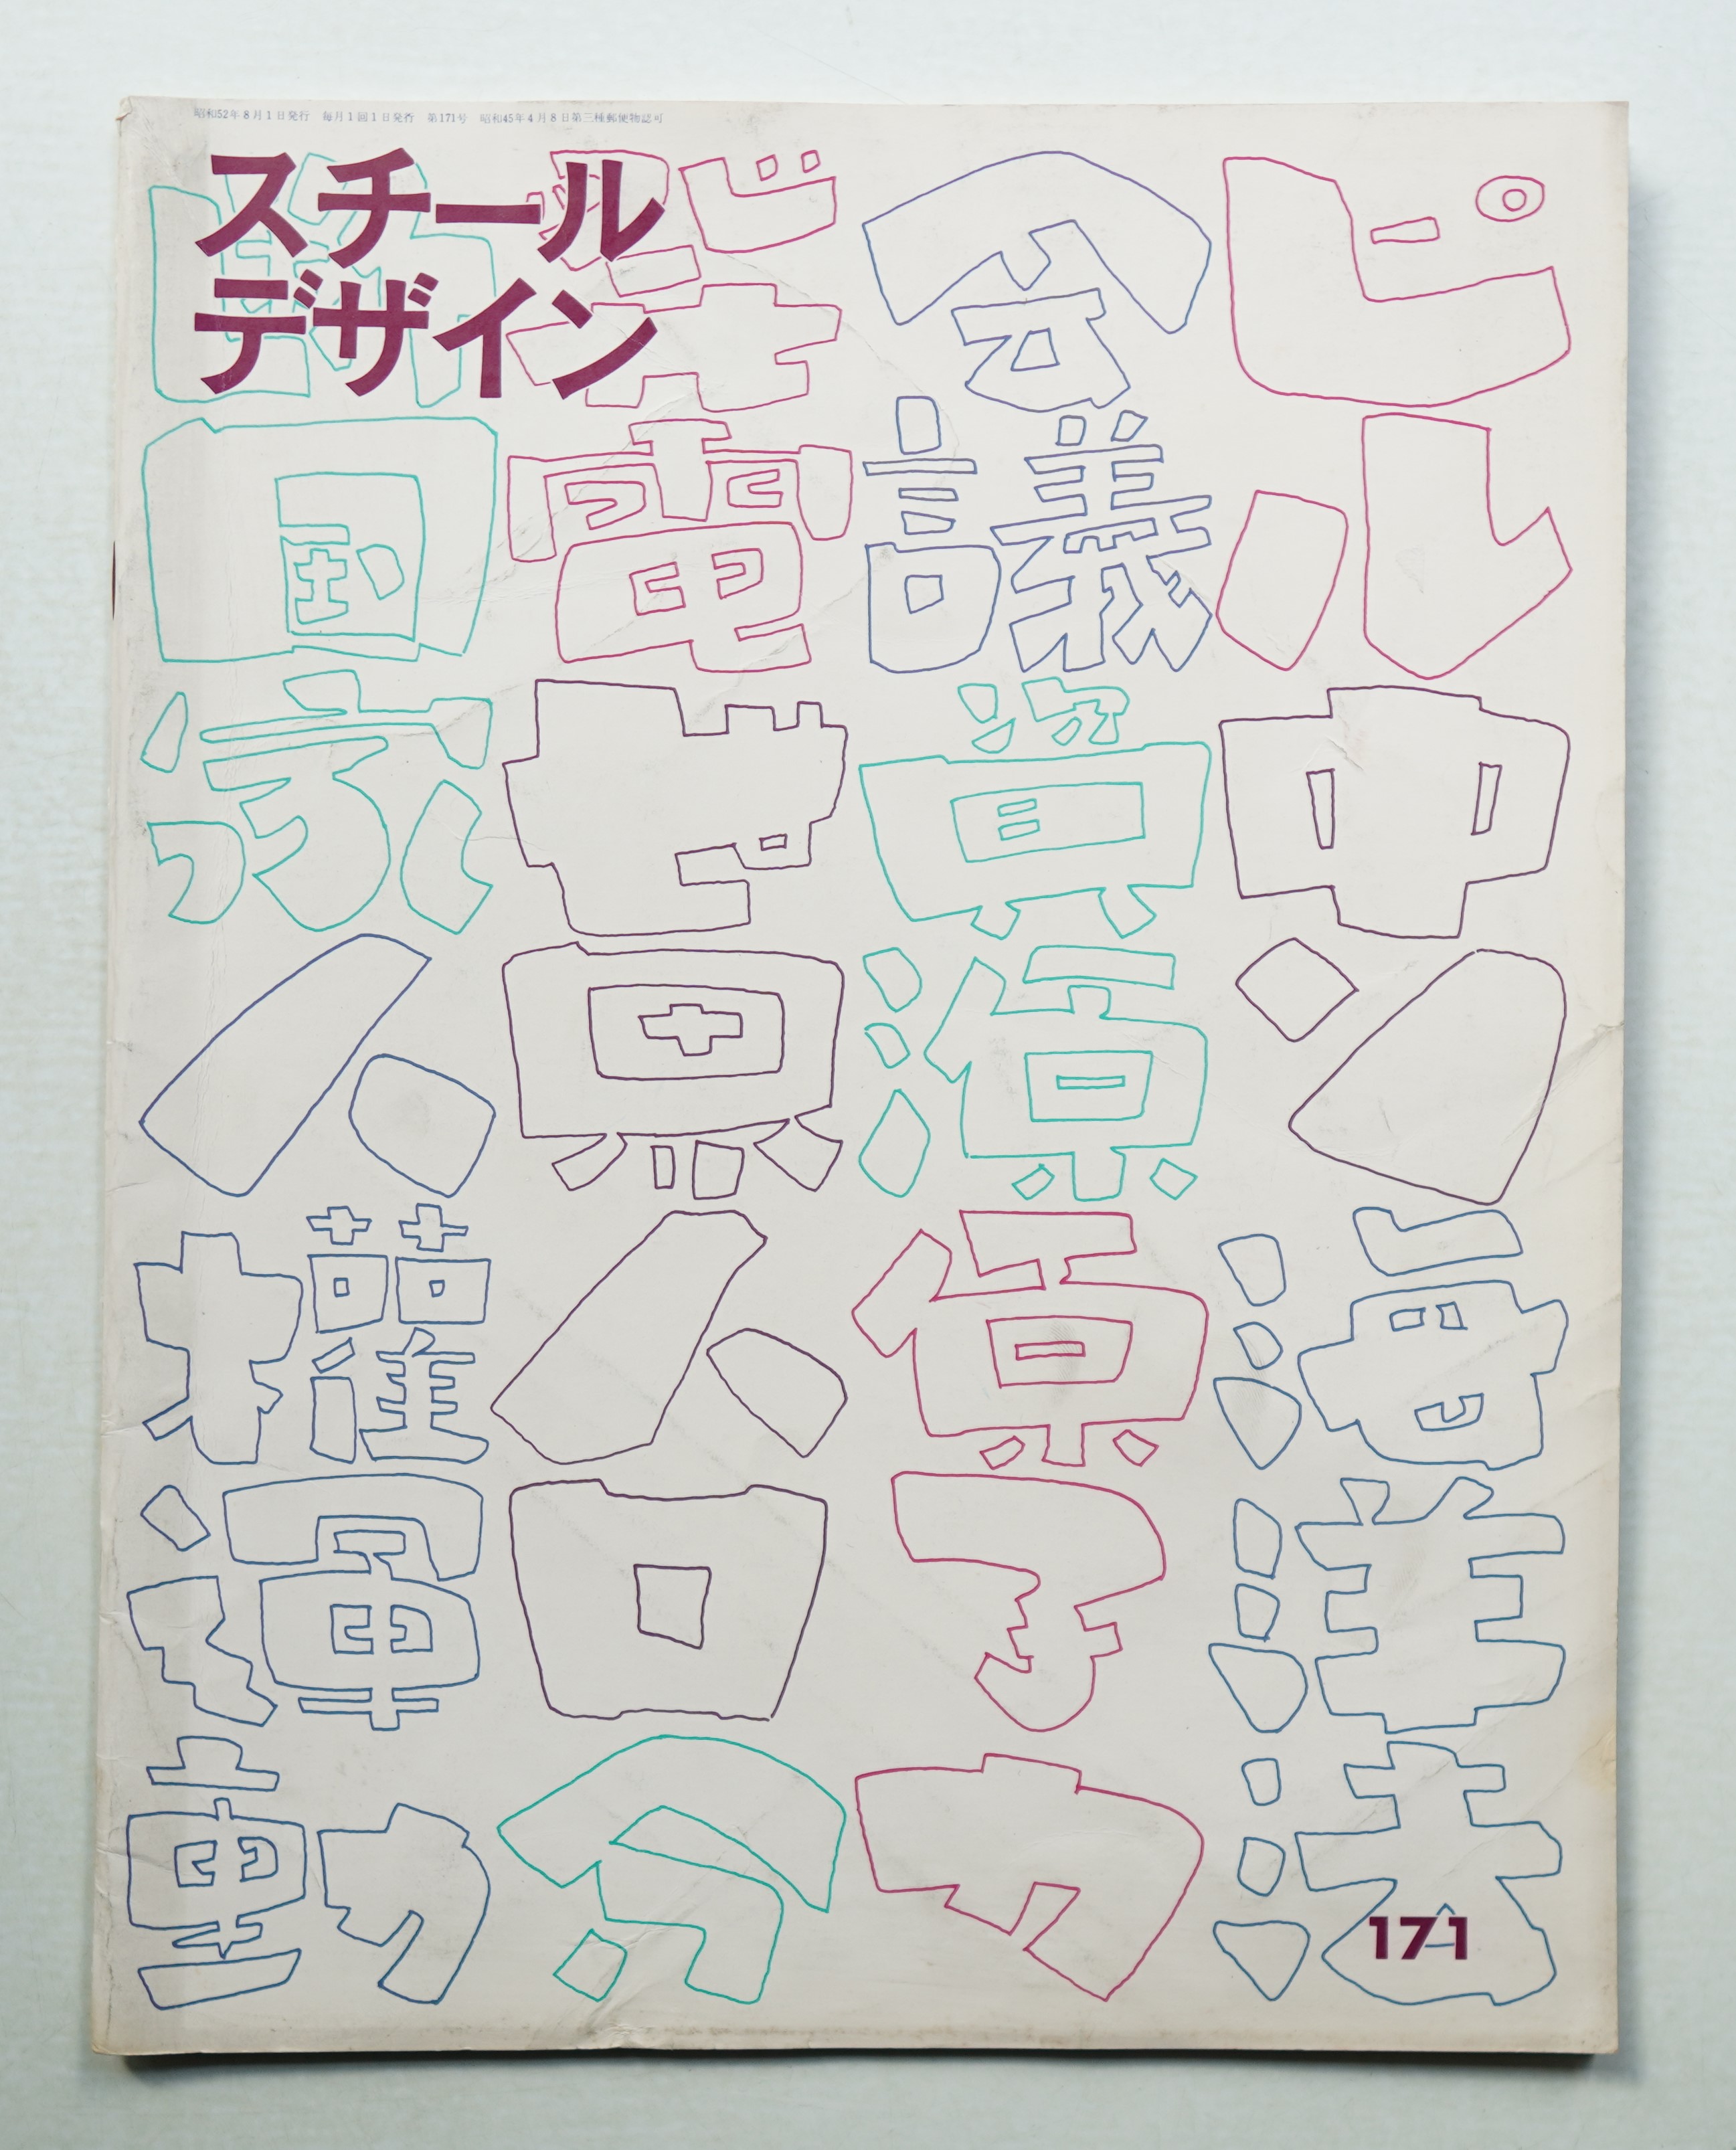 昭和52年8月1日発行　毎月1回1日発行　第171号　昭和45年4月8日第三種郵便物認可
スチール
デザイン
ピル中ソ海洋法
会議資源原子力
発電世界人口分
断国家人権運動
171